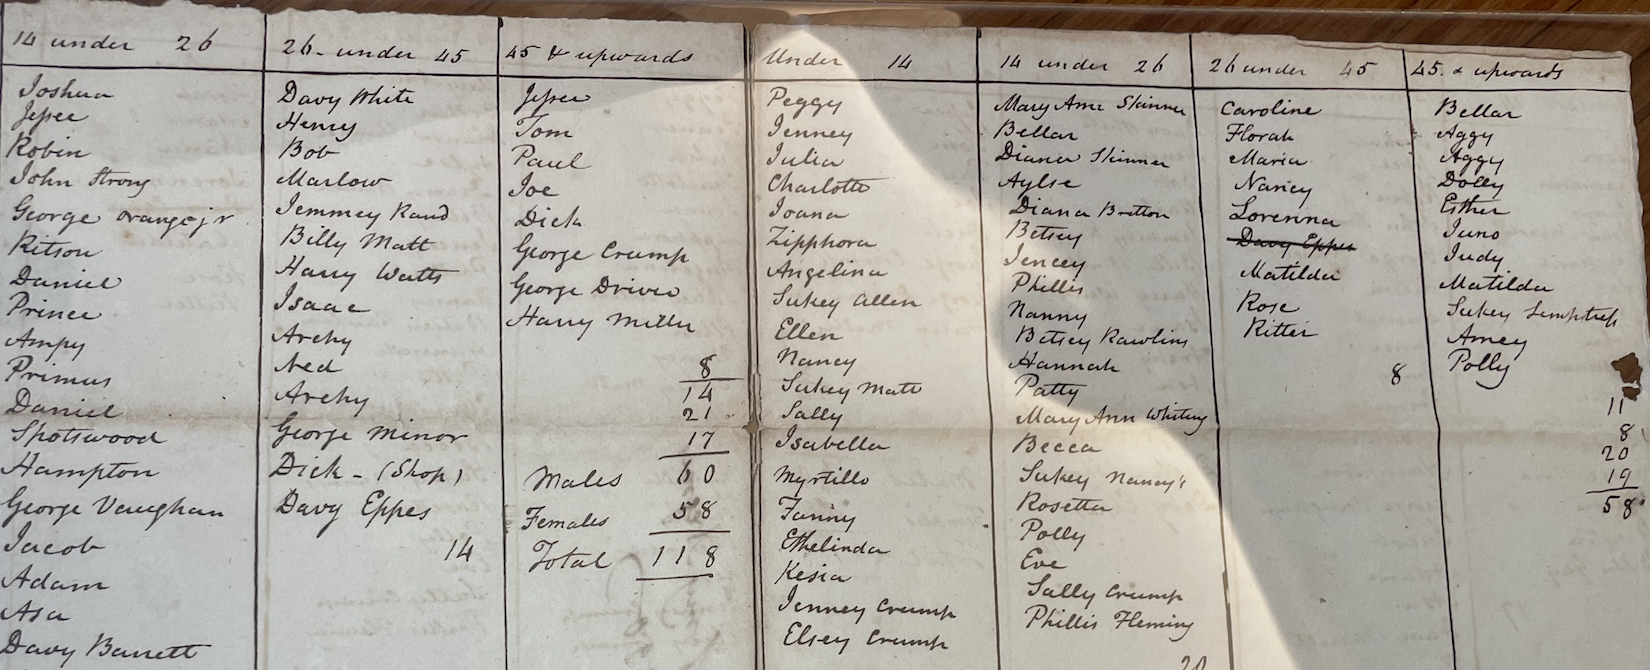 14 under 26
Joshua
Jessee
Robin
John Strong
George Orange jr
Kitson
Daniel
Prince
Ampy
Primus
Daniel
Spotswood
Hampton
George Vaughan
Jacob
Adam
Asa
Davy Barrett
26 - under 45
Davy White
Henry
Bob
Marlow
Jemmey Rand
Billy Matt
Harry Watts
Isaac
Archy
Ned
Archy
George Minor
Dick - (Shop)
Davy Eppes
14
45 & upwards
Jessee
Tom
Paul
Joe
Dick
George Crump
George Driver
Harry Miller
8
14
21
17
Males 60
Females 58
Total 118
Under 14
Peggy
Jenney
Julia
Charlotte
Joana
Zipphora
Angelina
Sukey Allen
Ellen
Nancy
Sukey Matt
Sally
Isabella
Myrtillo
Fanny
Ethelinda
Kesia
Jenney Crump
Elsey Crump
14 under 26
Mary Ann Skinner
Bellar
Diana Skinner
Aylse
Diana Britton
Betsey
Jencey
Phillis
Nanny
Betsey Rawlins
Hannah
Patty
Mary Ann Whiting
Becca
Sukey Nancy's
Rosetta
Polly
Eve
Sally Crump
Phillis Fleming
20
26 under 45
Caroline
Florah
Maria
Nancy
Lorenna
Davy Eppes
Matilda
Rose
Ritter
8
45. & upwards
Bellar
Aggy
Aggy
Dolly
Esther
Juno
Judy
Matilda
Sukey Semptress
Amey
Polly
11
8
20
19
58